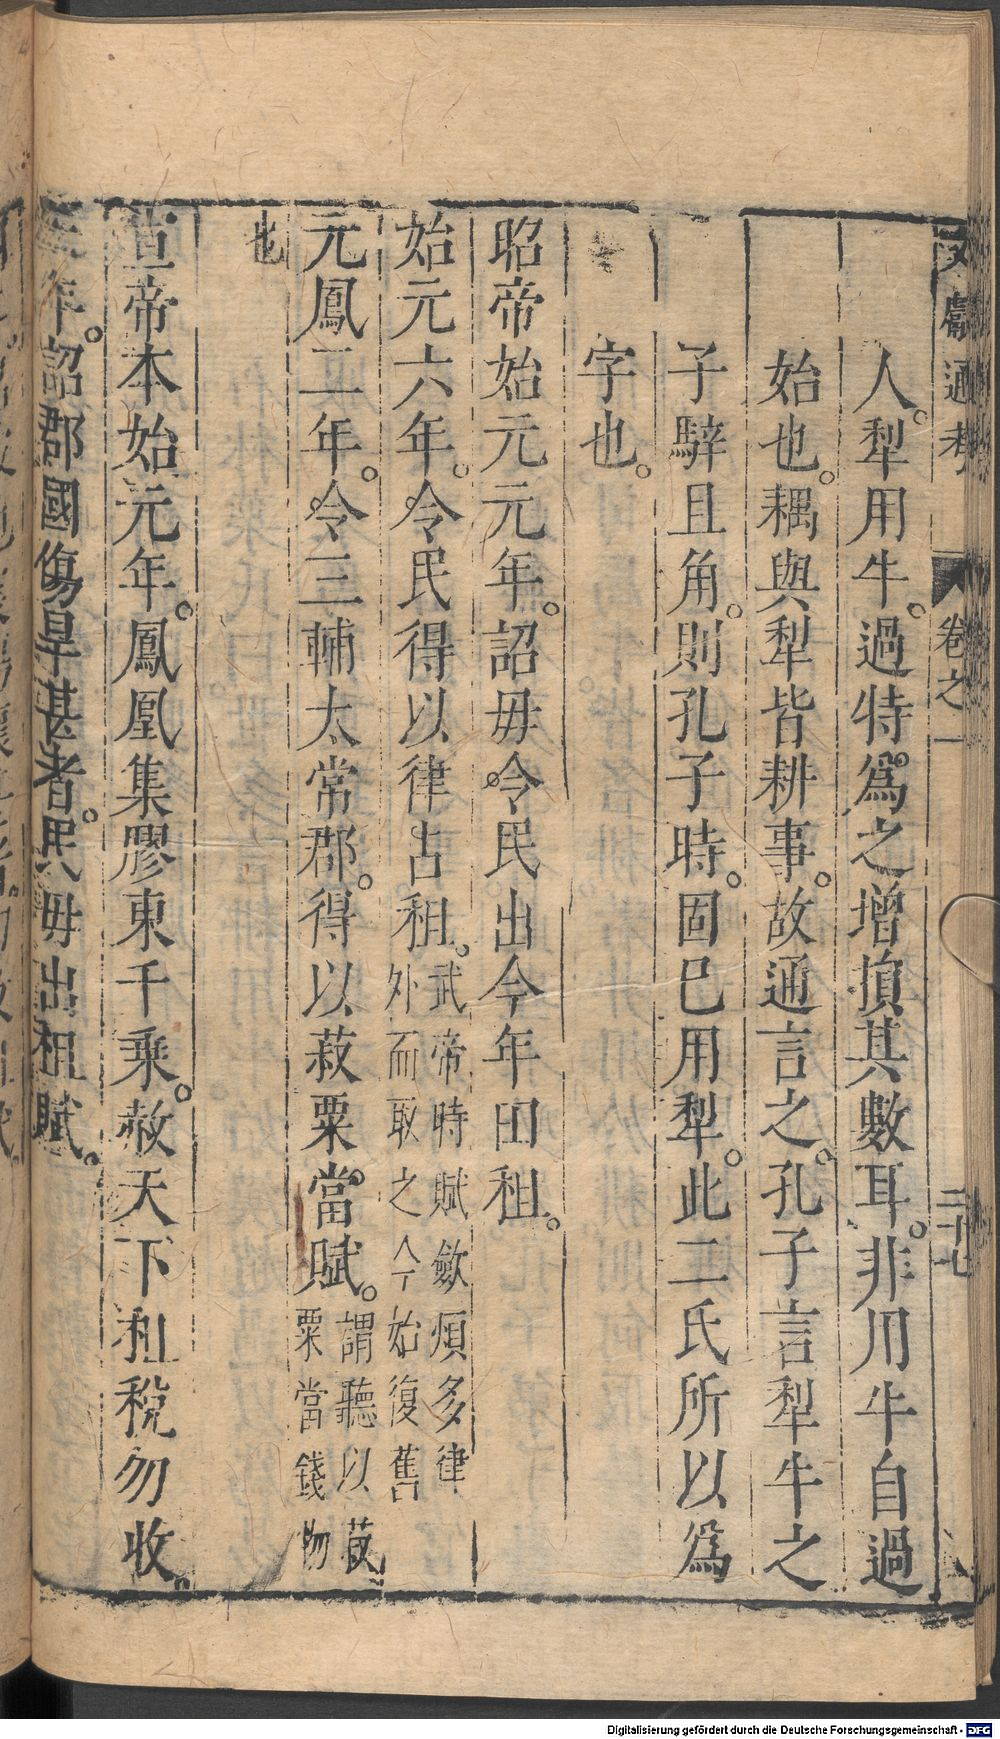 文獻通考 卷之一 二十七
人。犁用牛。過特爲之增損其數耳。非用牛自過
始也。耦與犁皆耕事。故通言之。孔子言犁牛之
子騂且角。則孔子時。固巳用犁。此二氏所以爲
字也。
昭帝始元元年。詔毋令民出今年田租。
始元六年。令民得以律占租。武帝時賦斂煩多律
外而取之今始復舊
元鳳二年。令三輔太常郡。得以菽粟當賦。謂聽以菽
粟當錢物
也
宣帝本始元年。鳳凰集膠東千乘。赦天下租稅勿收。
三年。詔郡國傷旱甚者。民毋出租賦。
Digitalisierung gefördert durch die Deutsche Forschungsgemeinschaft - DFG